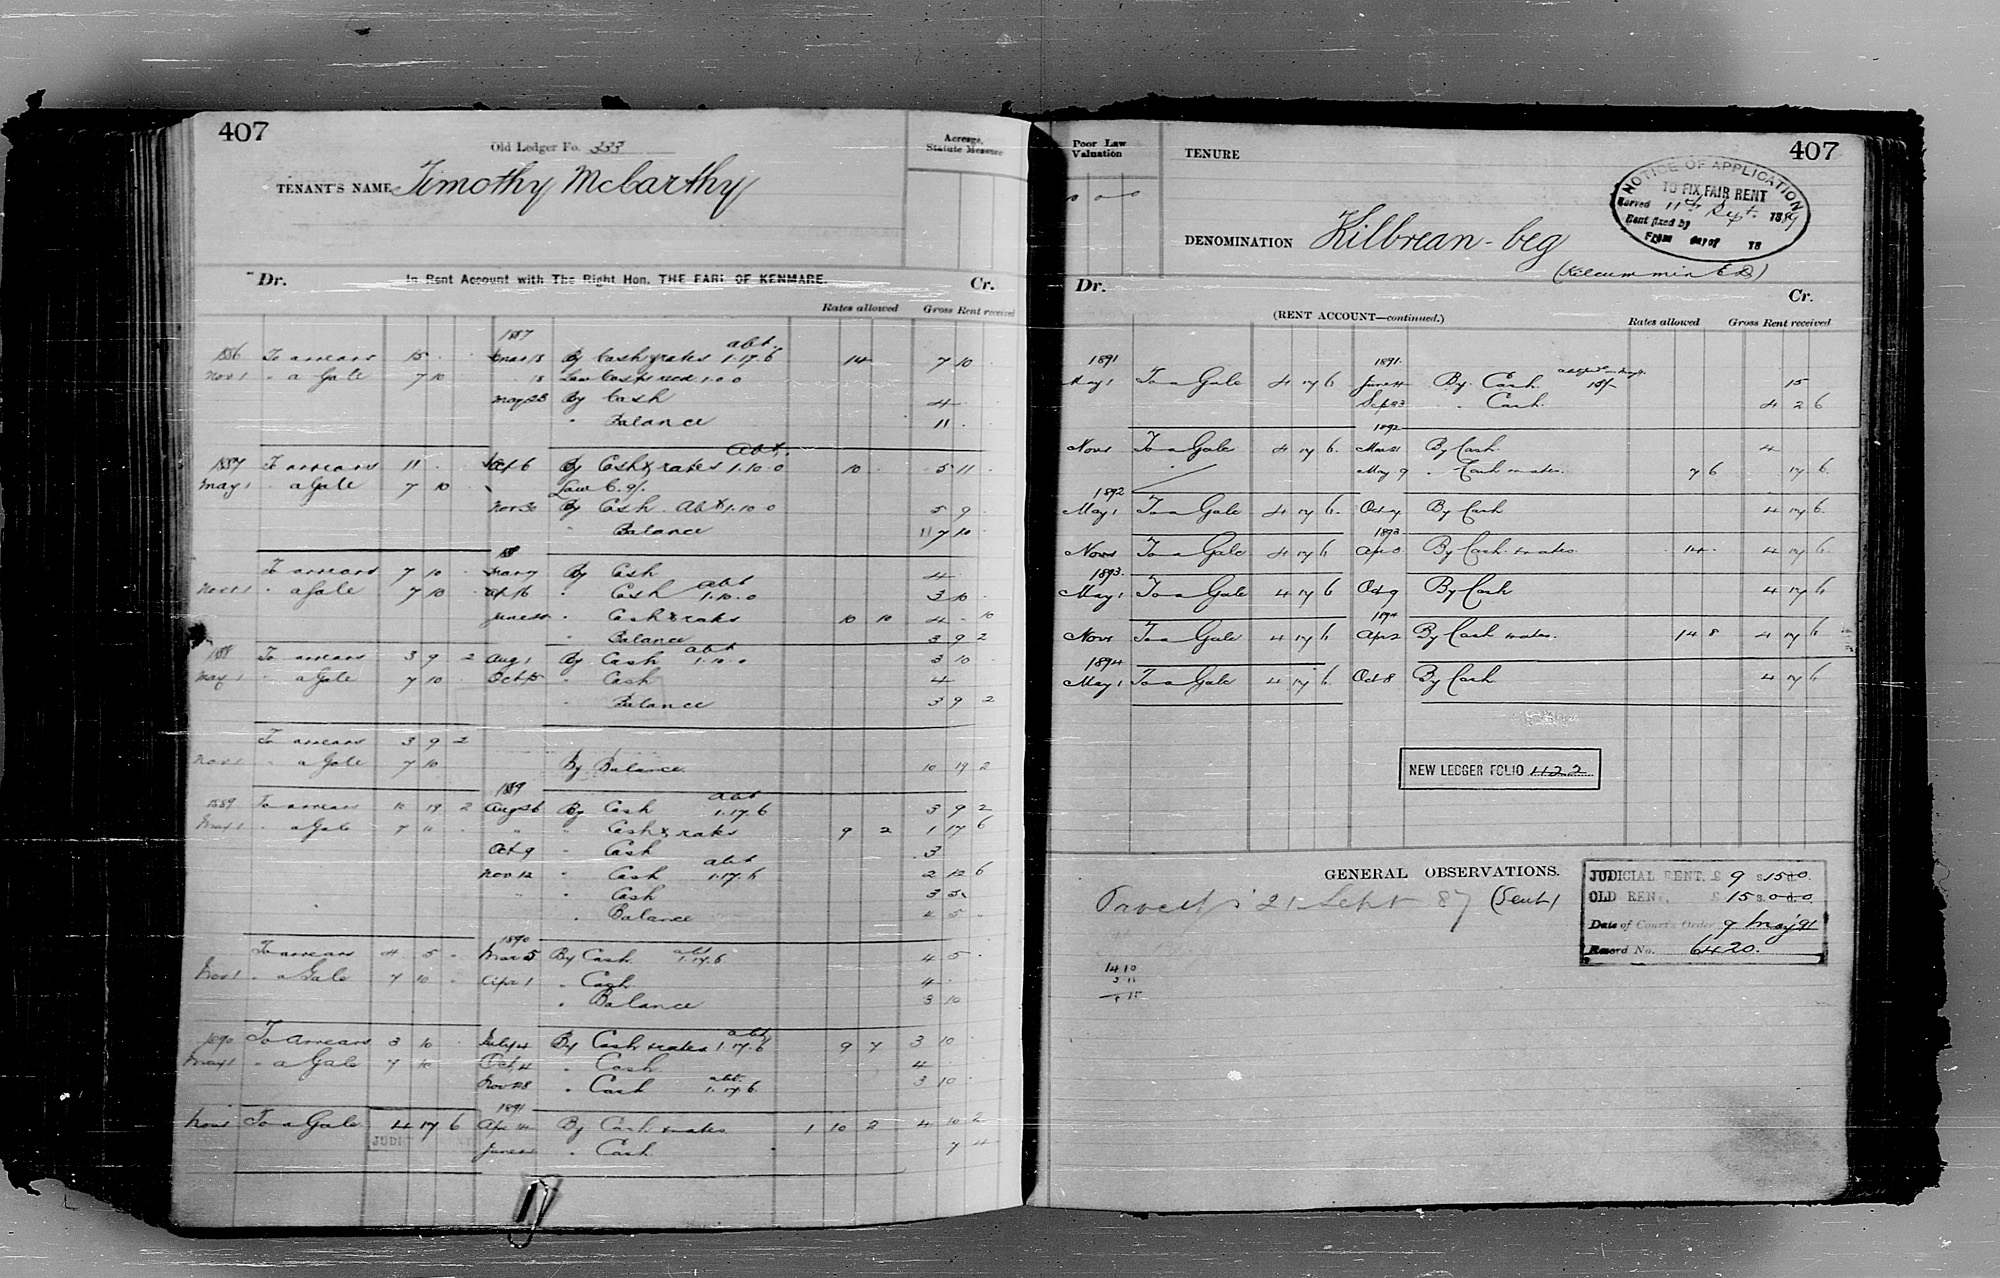 407
Old Ledger Fo. 333
Acreage, Statute Measure
TENANT'S NAME Timothy McCarthy
Dr. In Rent Account with The Right Hon. THE EARL OF KENMARE. Cr.
Rates allowed Gross Rent received
1887
abt.
1886 To arrears 15 . . Mar 18 By Cash & rates 1.17.6 14 7 10 .
Nov 1 " a Gale 7 10 18 Law Costs recd 1.0.0
May 28 By Cash 4
" Balance 11 .
Abt.
1887 To arrears 11 . . Oct 6 By Cash & rates 1.10.0 10 . 5 11 .
May 1 " a Gale 7 10 Law C. 9/.
Nov 30 By Cash. Abt 1.10.0 5 9
" Balance 7 10
188
To arrears 7 10 . Mar 7 By Cash 4
abt
Nov 1 " a Gale 7 10 . Apl 16 " Cash 1.10.0 3 10 .
June " Cash & rates 10 10 4 . 10
" Balance 3 9 2
abt
188 To arrears 3 9 2 Aug 1 By Cash 1.10.0 3 10 .
May 1 " a Gale 7 10 . Oct 15 " Cash 4
" Balance 3 9 2
To arrears 3 9 2
Nov 1 " a Gale 7 10 By Balance 10 19 2
1889
abt
1889 To arrears 10 19 2 Aug 26 By Cash 1.17.6 3 9 2
May 1 " a Gale 7 10 . " " Cash & rates 9 2 1 17 6
Oct 9 " Cash 3
abt
Nov 12 " Cash 1.17.6 2 12 6
" " Cash 3 5
" Balance 4 5 .
1890
To arrears 4 5 . Mar 5 By Cash abt 1.17.6 4 5 .
Nov 1 " a Gale 7 10 . Apr 1 " Cash 4 .
" Balance 3 10
abt
1890 To Arrears 3 10 July 4 By Cash & rates 1.17.6 9 7 3 10 .
May 1 " a Gale 7 10 Oct 4 " Cash 4
Nov 28 " Cash abt. 1.17.6 3 10 .
1891
Nov 1 To a Gale 4 17 6 Apr 14 By Cash & rates 1 10 2 4 10 2
June " Cash 7 4
Poor Law Valuation
TENURE
407
NOTICE OF APPLICATION
TO FIX FAIR RENT
Served 11th Sept. 1889
Rent fixed by
From day of 18
DENOMINATION Kilbrean-beg
(Kilcummin E.D)
Dr. Cr.
(RENT ACCOUNT—continued.)
Rates allowed Gross Rent received
1891 1891.
May 1 To a Gale 4 17 6 June By Cash 15/- 15
Sep 23 " Cash. 4 2 6
1892
Nov 1 To a Gale 4 17 6. Mar 21 By Cash. 4
May 9 " Cash & rates. 7 6 17 6.
1892
May 1 To a Gale 4 17 6. Oct 7 By Cash 4 17 6.
1893
Nov 1 To a Gale 4 17 6 Apr By Cash & rates 14. 4 17 6
1893.
May 1 To a Gale 4 17 6 Oct 9 By Cash 4 17 6
1894
Nov 1 To a Gale 4 17 6 Apr 2 By Cash & rates. 14 8 4 17 6
1894
May 1 To a Gale 4 17 6 Oct 8 By Cash 4 17 6
NEW LEDGER FOLIO 1122
GENERAL OBSERVATIONS.
21 Sept 87 (Sent)
JUDICIAL RENT. £ 9 s.15 d.0
OLD RENT, £ 15 s.0 d.0
Date of Court's Order 9 May 91
Record No. 6420.
14 10